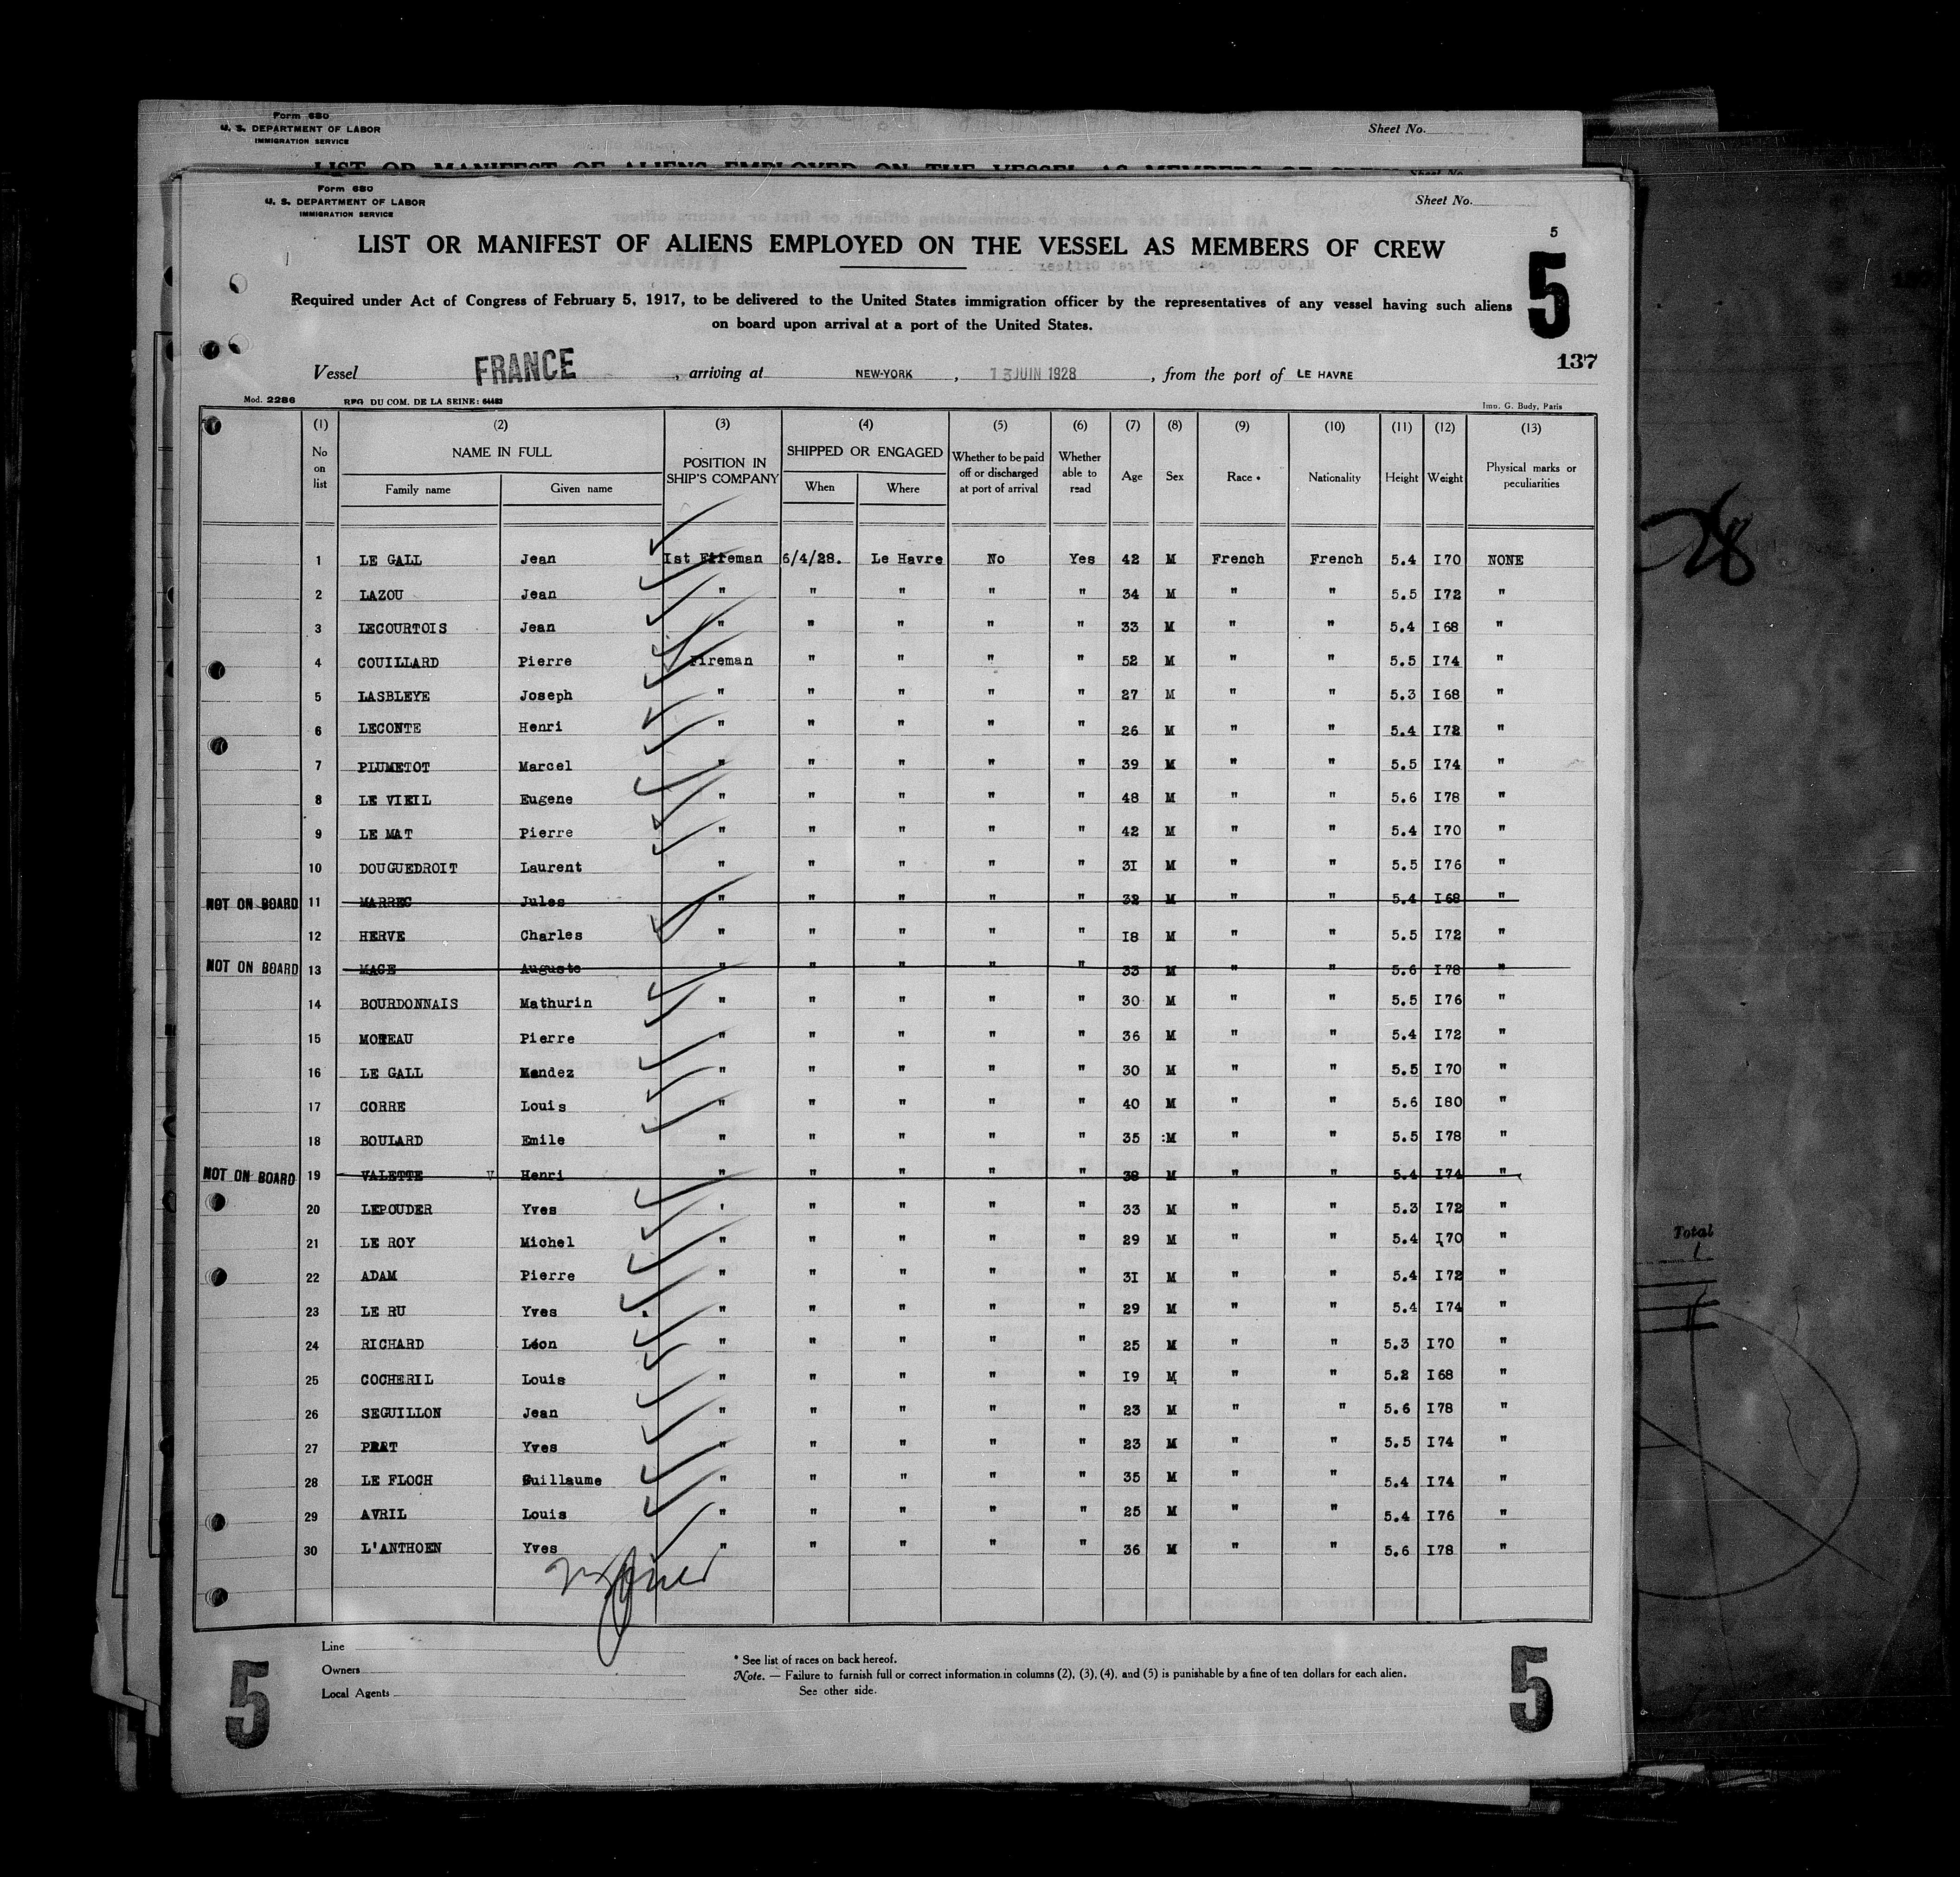 Form 680
U. S. DEPARTMENT OF LABOR
IMMIGRATION SERVICE
Sheet No.
LIST OR MANIFEST OF ALIENS EMPLOYED ON THE VESSEL AS MEMBERS OF CREW
Sheet No.
Form 680
U. S. DEPARTMENT OF LABOR
IMMIGRATION SERVICE
Sheet No.
5
LIST OR MANIFEST OF ALIENS EMPLOYED ON THE VESSEL AS MEMBERS OF CREW
5
Required under Act of Congress of February 5, 1917, to be delivered to the United States immigration officer by the representatives of any vessel having such aliens
on board upon arrival at a port of the United States.
137
Vessel FRANCE, arriving at NEW-YORK, 13 JUIN 1928, from the port of LE HAVRE
Mod. 2286 REG. DU COM. DE LA SEINE: 64483 Imp. G. Budy, Paris
(1) (2) (3) (4) (5) (6) (7) (8) (9) (10) (11) (12) (13)
No on list NAME IN FULL Family name Given name POSITION IN SHIP'S COMPANY SHIPPED OR ENGAGED When Where Whether to be paid off or discharged at port of arrival Whether able to read Age Sex Race * Nationality Height Weight Physical marks or peculiarities
1 LE GALL Jean Ist Fireman 6/4/28. Le Havre No Yes 42 M French French 5.4 I70 NONE
2 LAZOU Jean " " " " " 34 M " " 5.5 I72 "
3 LECOURTOIS Jean " " " " " 33 M " " 5.4 I68 "
4 COUILLARD Pierre Fireman " " " " 52 M " " 5.5 I74 "
5 LASBLEYE Joseph " " " " " 27 M " " 5.3 I68 "
6 LECONTE Henri " " " " " 26 M " " 5.4 I72 "
7 PLUMETOT Marcel " " " " " 39 M " " 5.5 I74 "
8 LE VIEIL Eugene " " " " " 48 M " " 5.6 I78 "
9 LE MAT Pierre " " " " " 42 M " " 5.4 I70 "
10 DOUGUEDROIT Laurent " " " " " 3I M " " 5.5 I76 "
NOT ON BOARD 11 MARREC Jules " " " " " 32 M " " 5.4 I68 "
12 HERVE Charles " " " " " I8 M " " 5.5 I72 "
NOT ON BOARD 13 MACE Auguste " " " " " 33 M " " 5.6 I78 "
14 BOURDONNAIS Mathurin " " " " " 30 M " " 5.5 I76 "
15 MOREAU Pierre " " " " " 36 M " " 5.4 I72 "
16 LE GALL Mandez " " " " " 30 M " " 5.5 I70 "
17 CORRE Louis " " " " " 40 M " " 5.6 I80 "
18 BOULARD Emile " " " " " 35 :M " " 5.5 I78 "
NOT ON BOARD 19 VALETTE V Henri " " " " " 38 M " " 5.4 I74 "
20 LEPOUDER Yves ' " " " " 33 M " " 5.3 I72 "
21 LE ROY Michel " " " " " 29 M " " 5.4 I70 "
22 ADAM Pierre " " " " " 3I M " " 5.4 I72 "
23 LE RU Yves " " " " " 29 M " " 5.4 I74 "
24 RICHARD Léon " " " " " 25 M " " 5.3 I70 "
25 COCHERIL Louis " " " " " I9 M " " 5.2 I68 "
26 SEGUILLON Jean " " " " " 23 M " " 5.6 I78 "
27 PRAT Yves " " " " " 23 M " " 5.5 I74 "
28 LE FLOCH Guillaume " " " " " 35 M " " 5.4 I74 "
29 AVRIL Louis " " " " " 25 M " " 5.4 I76 "
30 L'ANTHOEN Yves " " " " " 36 M " " 5.6 I78 "
Line
Owners
Local Agents
* See list of races on back hereof.
Note. — Failure to furnish full or correct information in columns (2), (3), (4), and (5) is punishable by a fine of ten dollars for each alien.
See other side.
5
5
Total